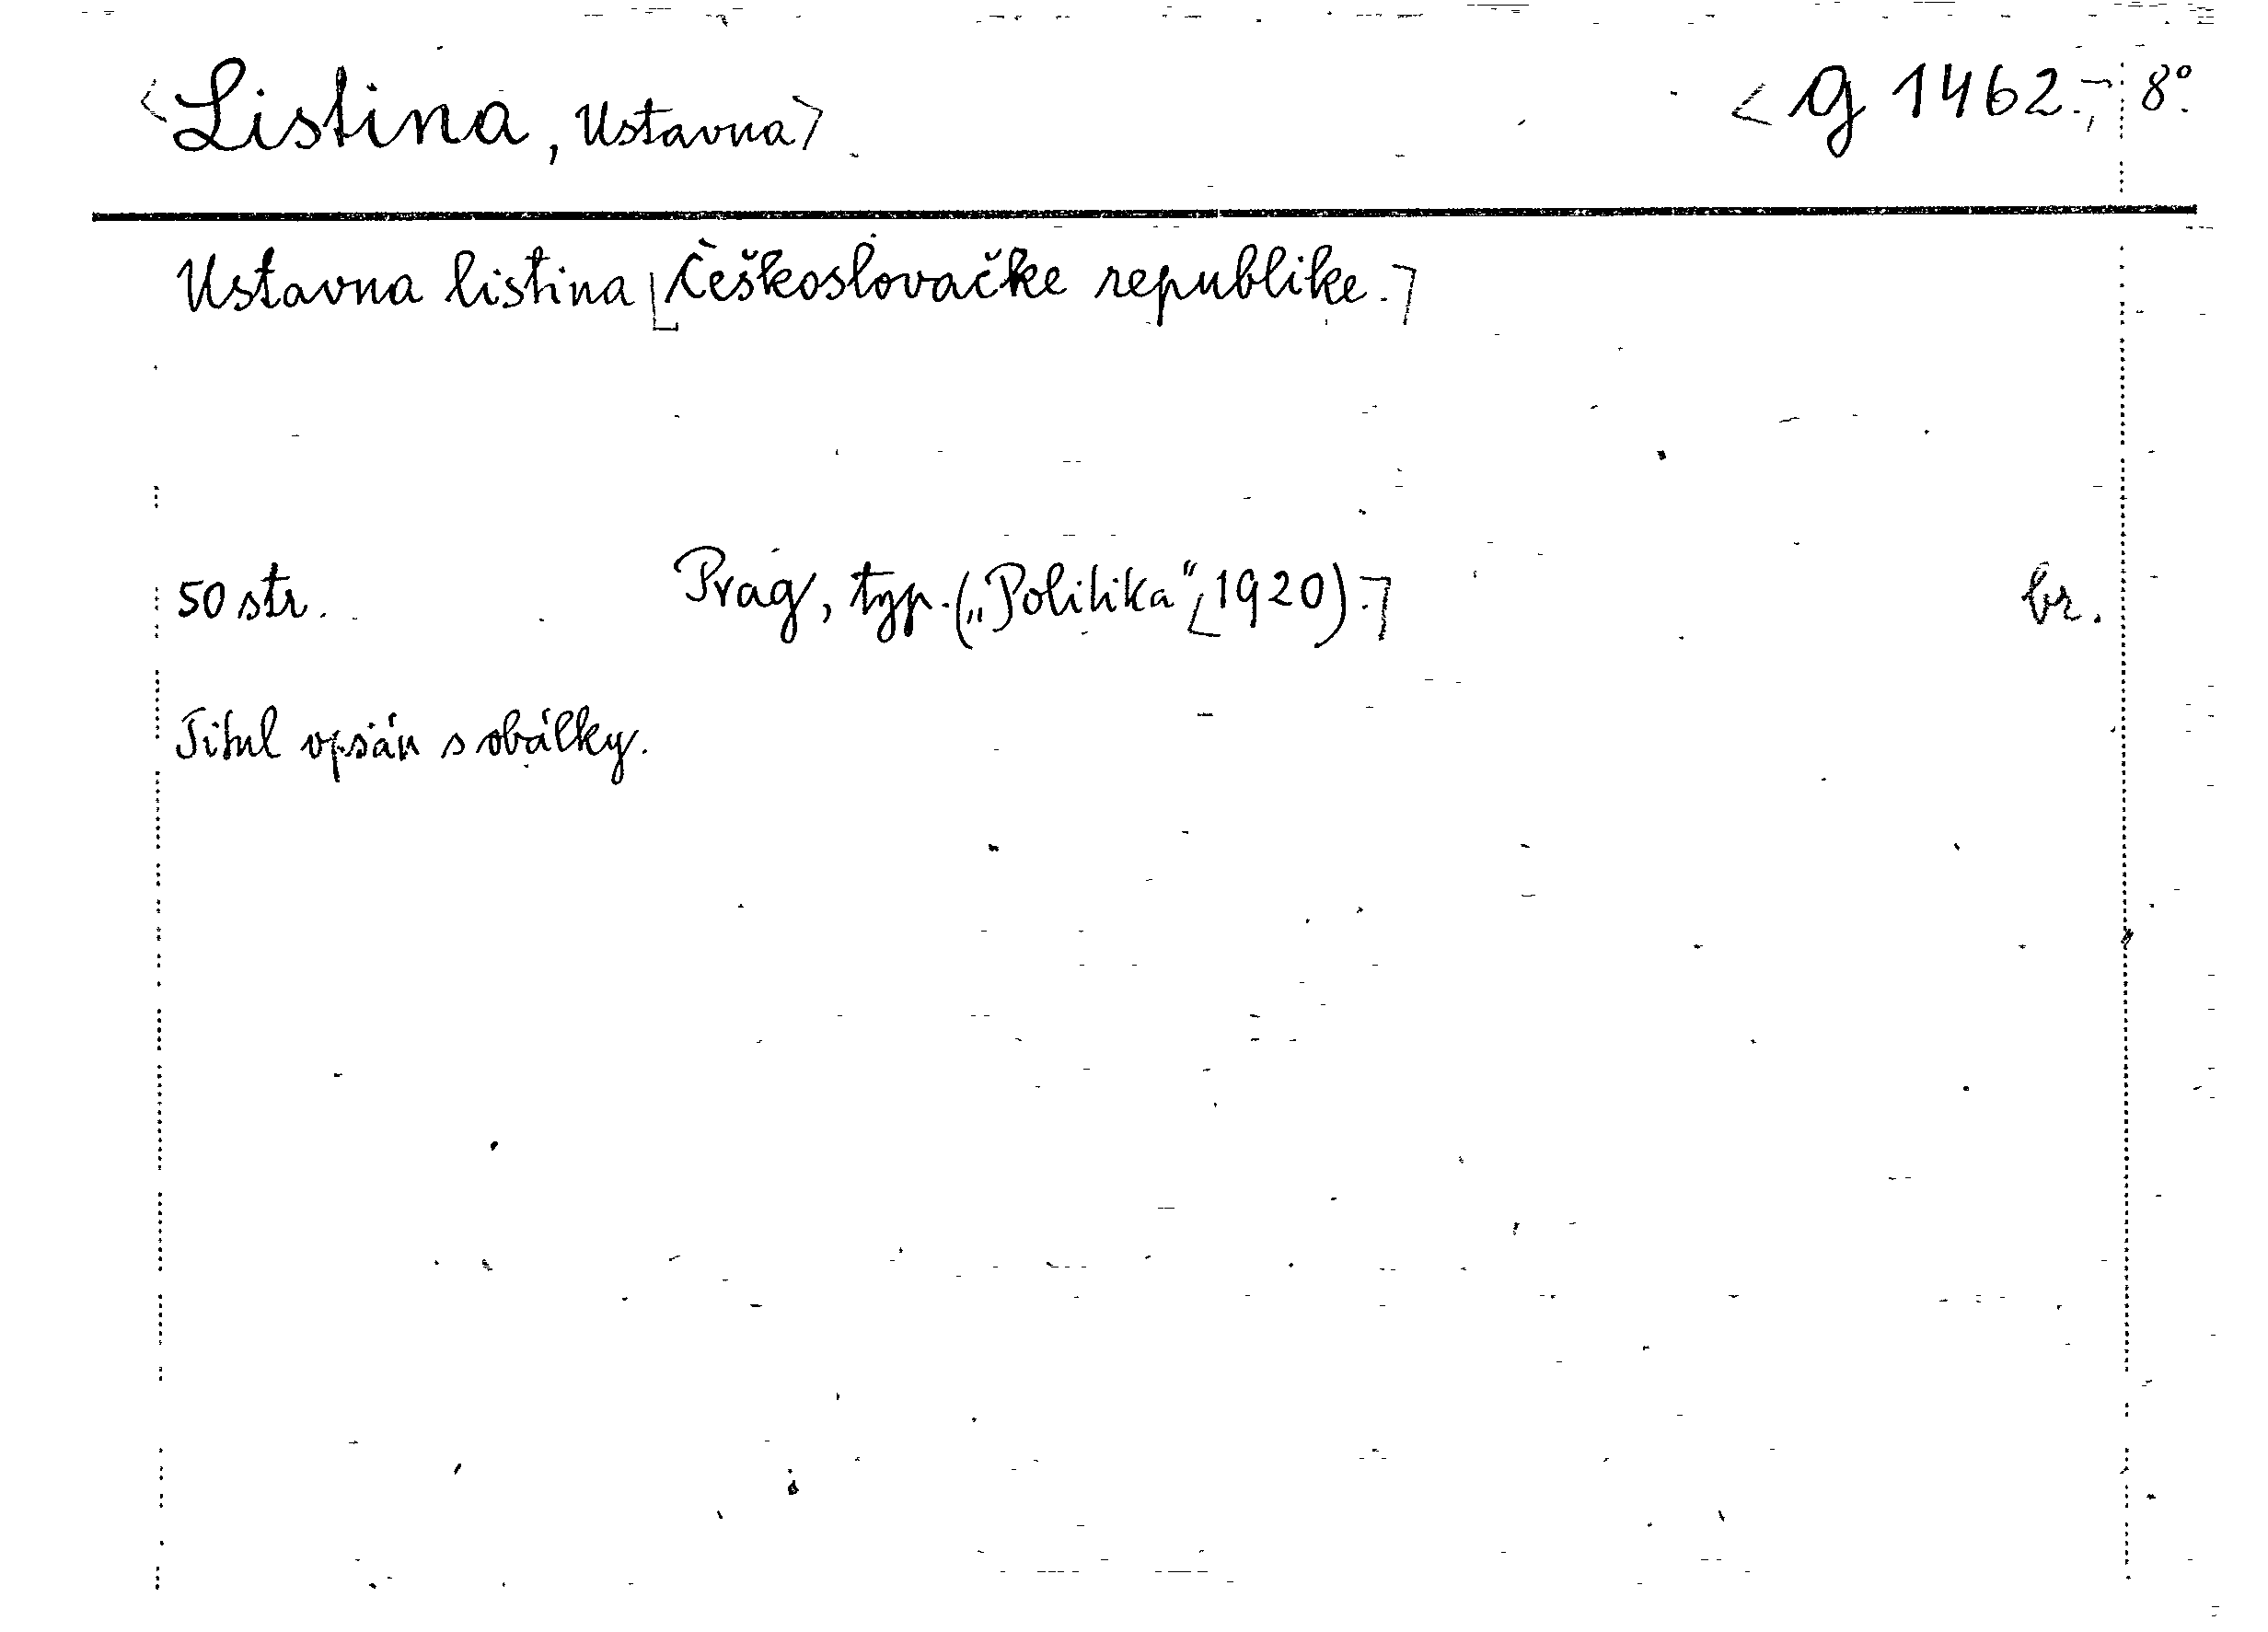 <Listina, Ustavna> <G 1462.> 8°.
Ustavna listina [Češkoslovačke republike.]
50 str. Prag, typ. („Politika“ [1920).] br.
Titul opsán s obálky.